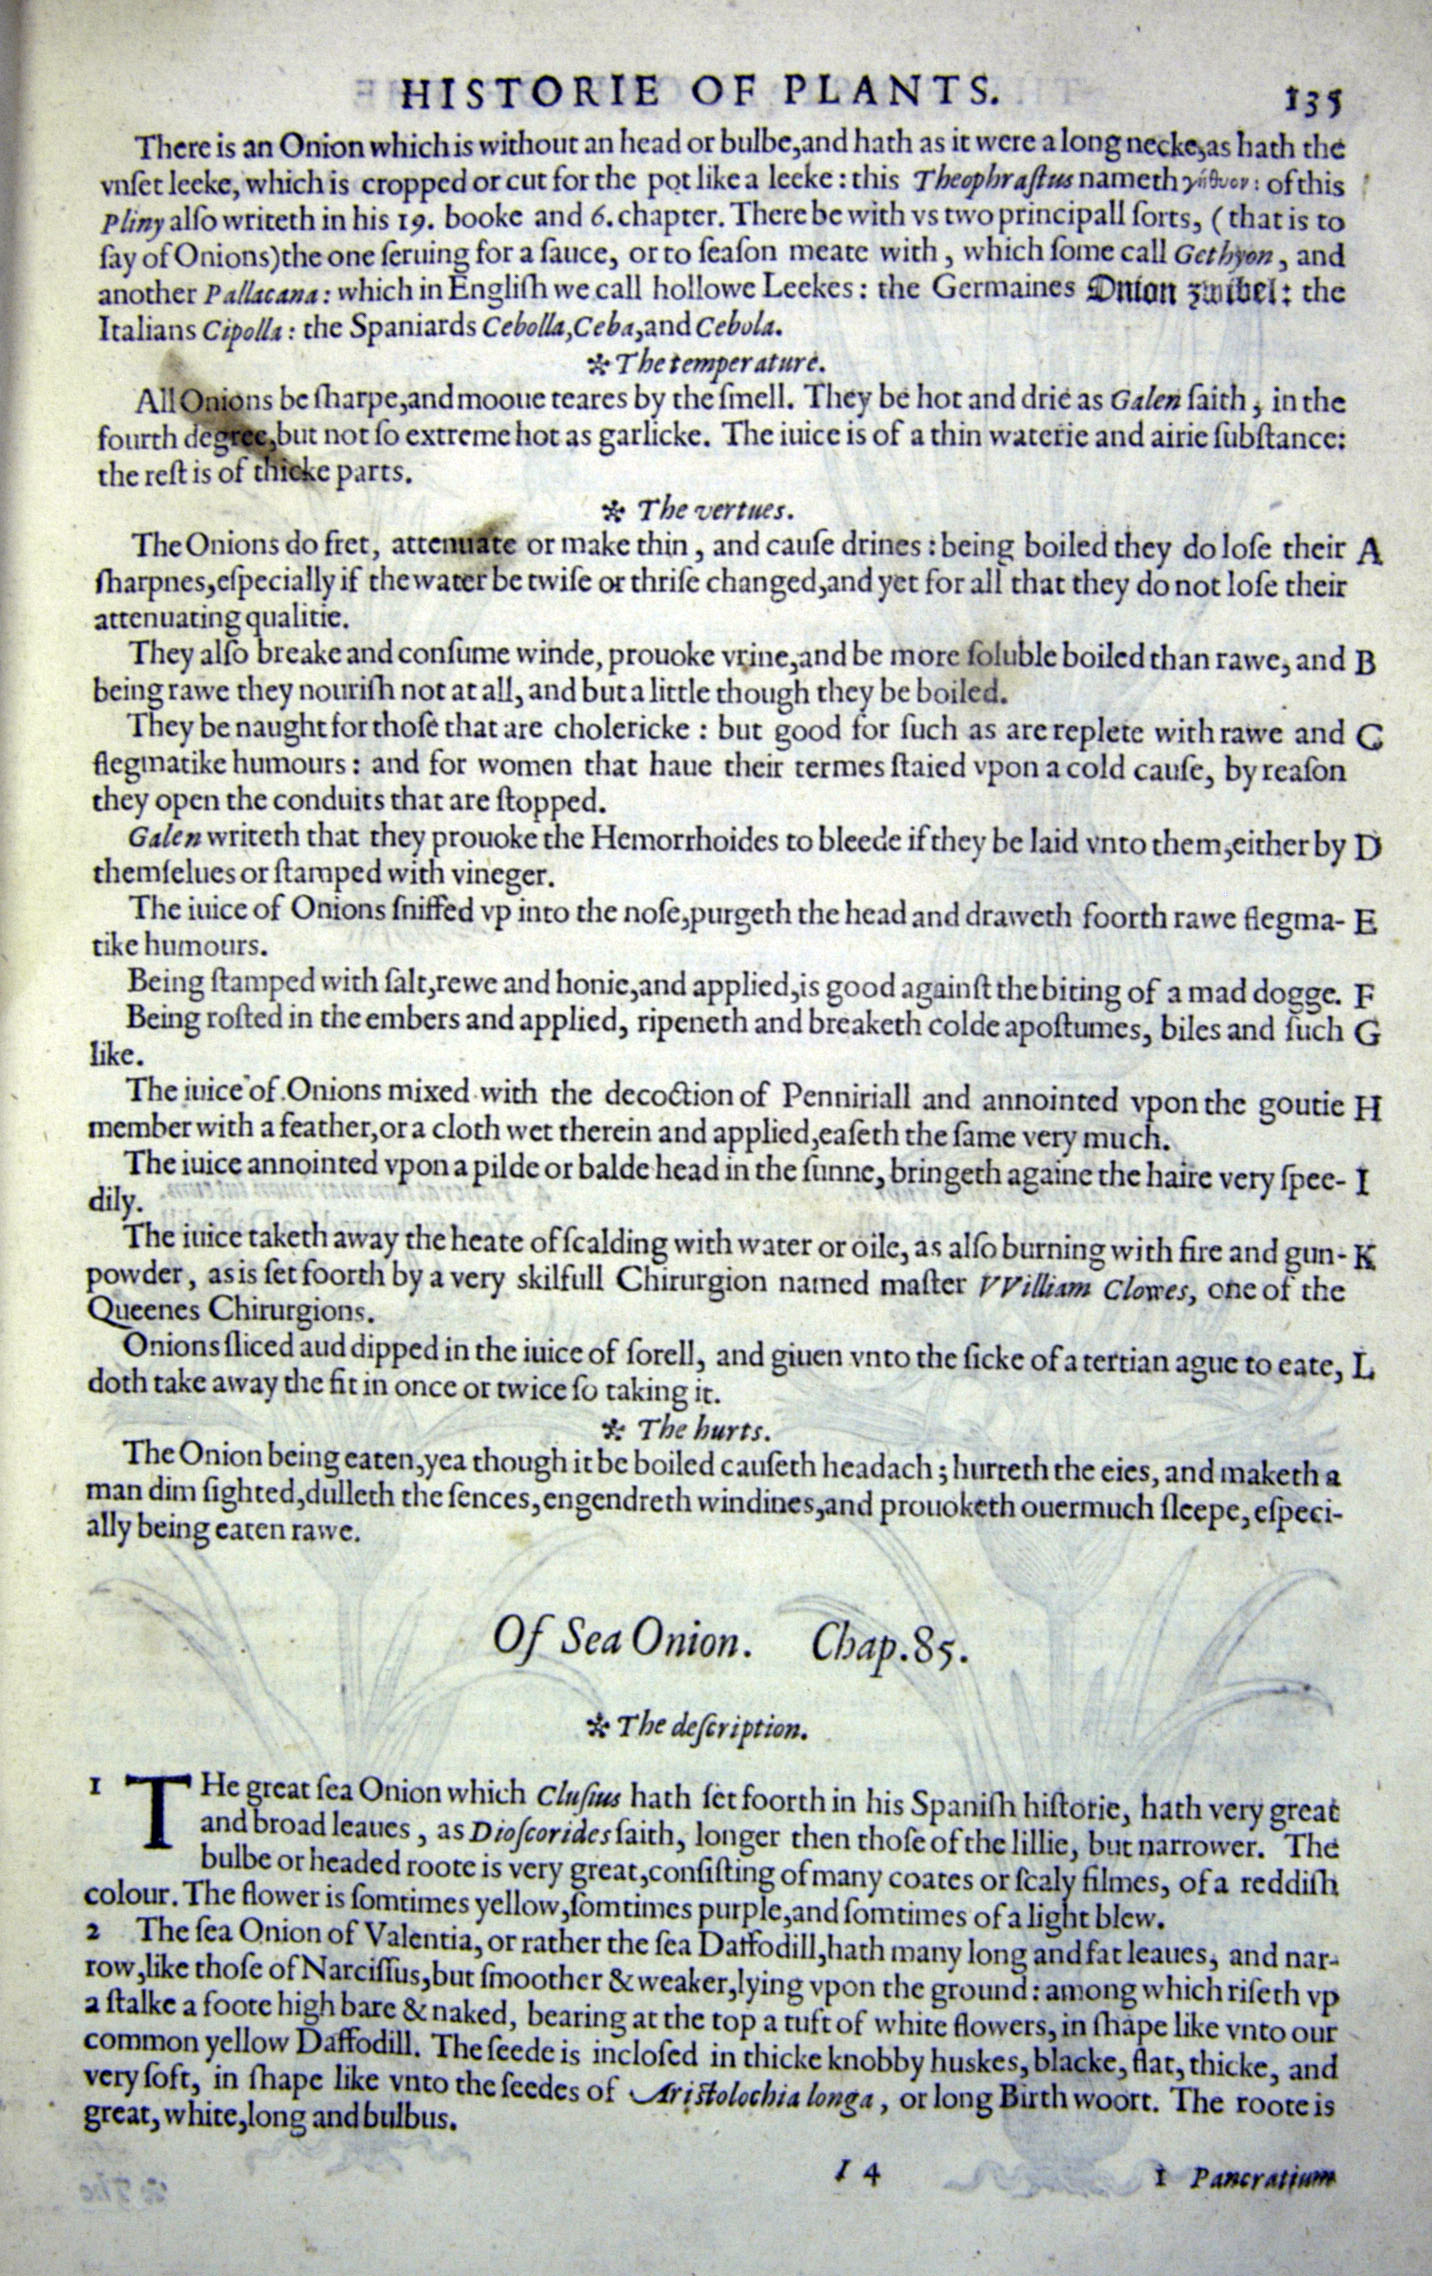 HISTORIE OF PLANTS. 135
There is an Onion which is without an head or bulbe,and hath as it were a long necke,as hath the
vnſet leeke, which is cropped or cut for the pot like a leeke : this Theophraſtus nameth γήθυον: of this
Pliny alſo writeth in his 19. booke and 6. chapter. There be with vs two principall ſorts, ( that is to
ſay of Onions)the one ſeruing for a ſauce, or to ſeaſon meate with , which ſome call Gethyon , and
another Pallacana : which in Engliſh we call hollowe Leekes : the Germaines Onion zwibel: the
Italians Cipolla : the Spaniards Cebolla,Ceba,and Cebola.
❉ The temperature.
All Onions be ſharpe,and mooue teares by the ſmell. They be hot and drie as Galen ſaith , in the
fourth degree,but not ſo extreme hot as garlicke. The iuice is of a thin waterie and airie ſubſtance:
the reſt is of thicke parts.
❉ The vertues.
The Onions do fret, attenuate or make thin , and cauſe drines : being boiled they do loſe their A
ſharpnes,eſpecially if the water be twiſe or thriſe changed,and yet for all that they do not loſe their
attenuating qualitie.
They alſo breake and conſume winde, prouoke vrine,and be more ſoluble boiled than rawe, and B
being rawe they nouriſh not at all, and but a little though they be boiled.
They be naught for thoſe that are cholericke : but good for ſuch as are replete with rawe and C
flegmatike humours : and for women that haue their termes ſtaied vpon a cold cauſe, by reaſon
they open the conduits that are ſtopped.
Galen writeth that they prouoke the Hemorrhoides to bleede if they be laid vnto them,either by D
themſelues or ſtamped with vineger.
The iuice of Onions ſniffed vp into the noſe,purgeth the head and draweth foorth rawe flegma- E
tike humours.
Being ſtamped with ſalt,rewe and honie,and applied,is good againſt the biting of a mad dogge. F
Being roſted in the embers and applied, ripeneth and breaketh colde apoſtumes, biles and ſuch G
like.
The iuice of Onions mixed with the decoction of Penniriall and annointed vpon the goutie H
member with a feather,or a cloth wet therein and applied,eaſeth the ſame very much.
The iuice annointed vpon a pilde or balde head in the ſunne, bringeth againe the haire very ſpee- I
dily.
The iuice taketh away the heate of ſcalding with water or oile, as alſo burning with fire and gun- K
powder , as is ſet foorth by a very skilfull Chirurgion named maſter VVilliam Clowes, one of the
Queenes Chirurgions.
Onions ſliced aud dipped in the iuice of ſorell, and giuen vnto the ſicke of a tertian ague to eate, L
doth take away the fit in once or twice ſo taking it.
❉ The hurts.
The Onion being eaten,yea though it be boiled cauſeth headach ; hurteth the eies, and maketh a
man dim ſighted,dulleth the ſences,engendreth windines,and prouoketh ouermuch ſleepe, eſpeci-
ally being eaten rawe.
Of Sea Onion. Chap.85.
❉ The deſcription.
1 THe great ſea Onion which Cluſius hath ſet foorth in his Spaniſh hiſtorie, hath very great
and broad leaues , as Dioſcorides ſaith, longer then thoſe of the lillie, but narrower. The
bulbe or headed roote is very great,conſiſting of many coates or ſcaly filmes, of a reddiſh
colour. The flower is ſomtimes yellow,ſomtimes purple,and ſomtimes of a light blew.
2 The ſea Onion of Valentia, or rather the ſea Daffodill,hath many long and fat leaues, and nar-
row,like thoſe of Narciſſus,but ſmoother & weaker,lying vpon the ground : among which riſeth vp
a ſtalke a foote high bare & naked, bearing at the top a tuft of white flowers, in ſhape like vnto our
common yellow Daffodill. The ſeede is incloſed in thicke knobby huskes, blacke, flat, thicke, and
very ſoft, in ſhape like vnto the ſeedes of Ariſtolochia longa , or long Birth woort. The roote is
great, white,long and bulbus.
I 4 1 Pancratium